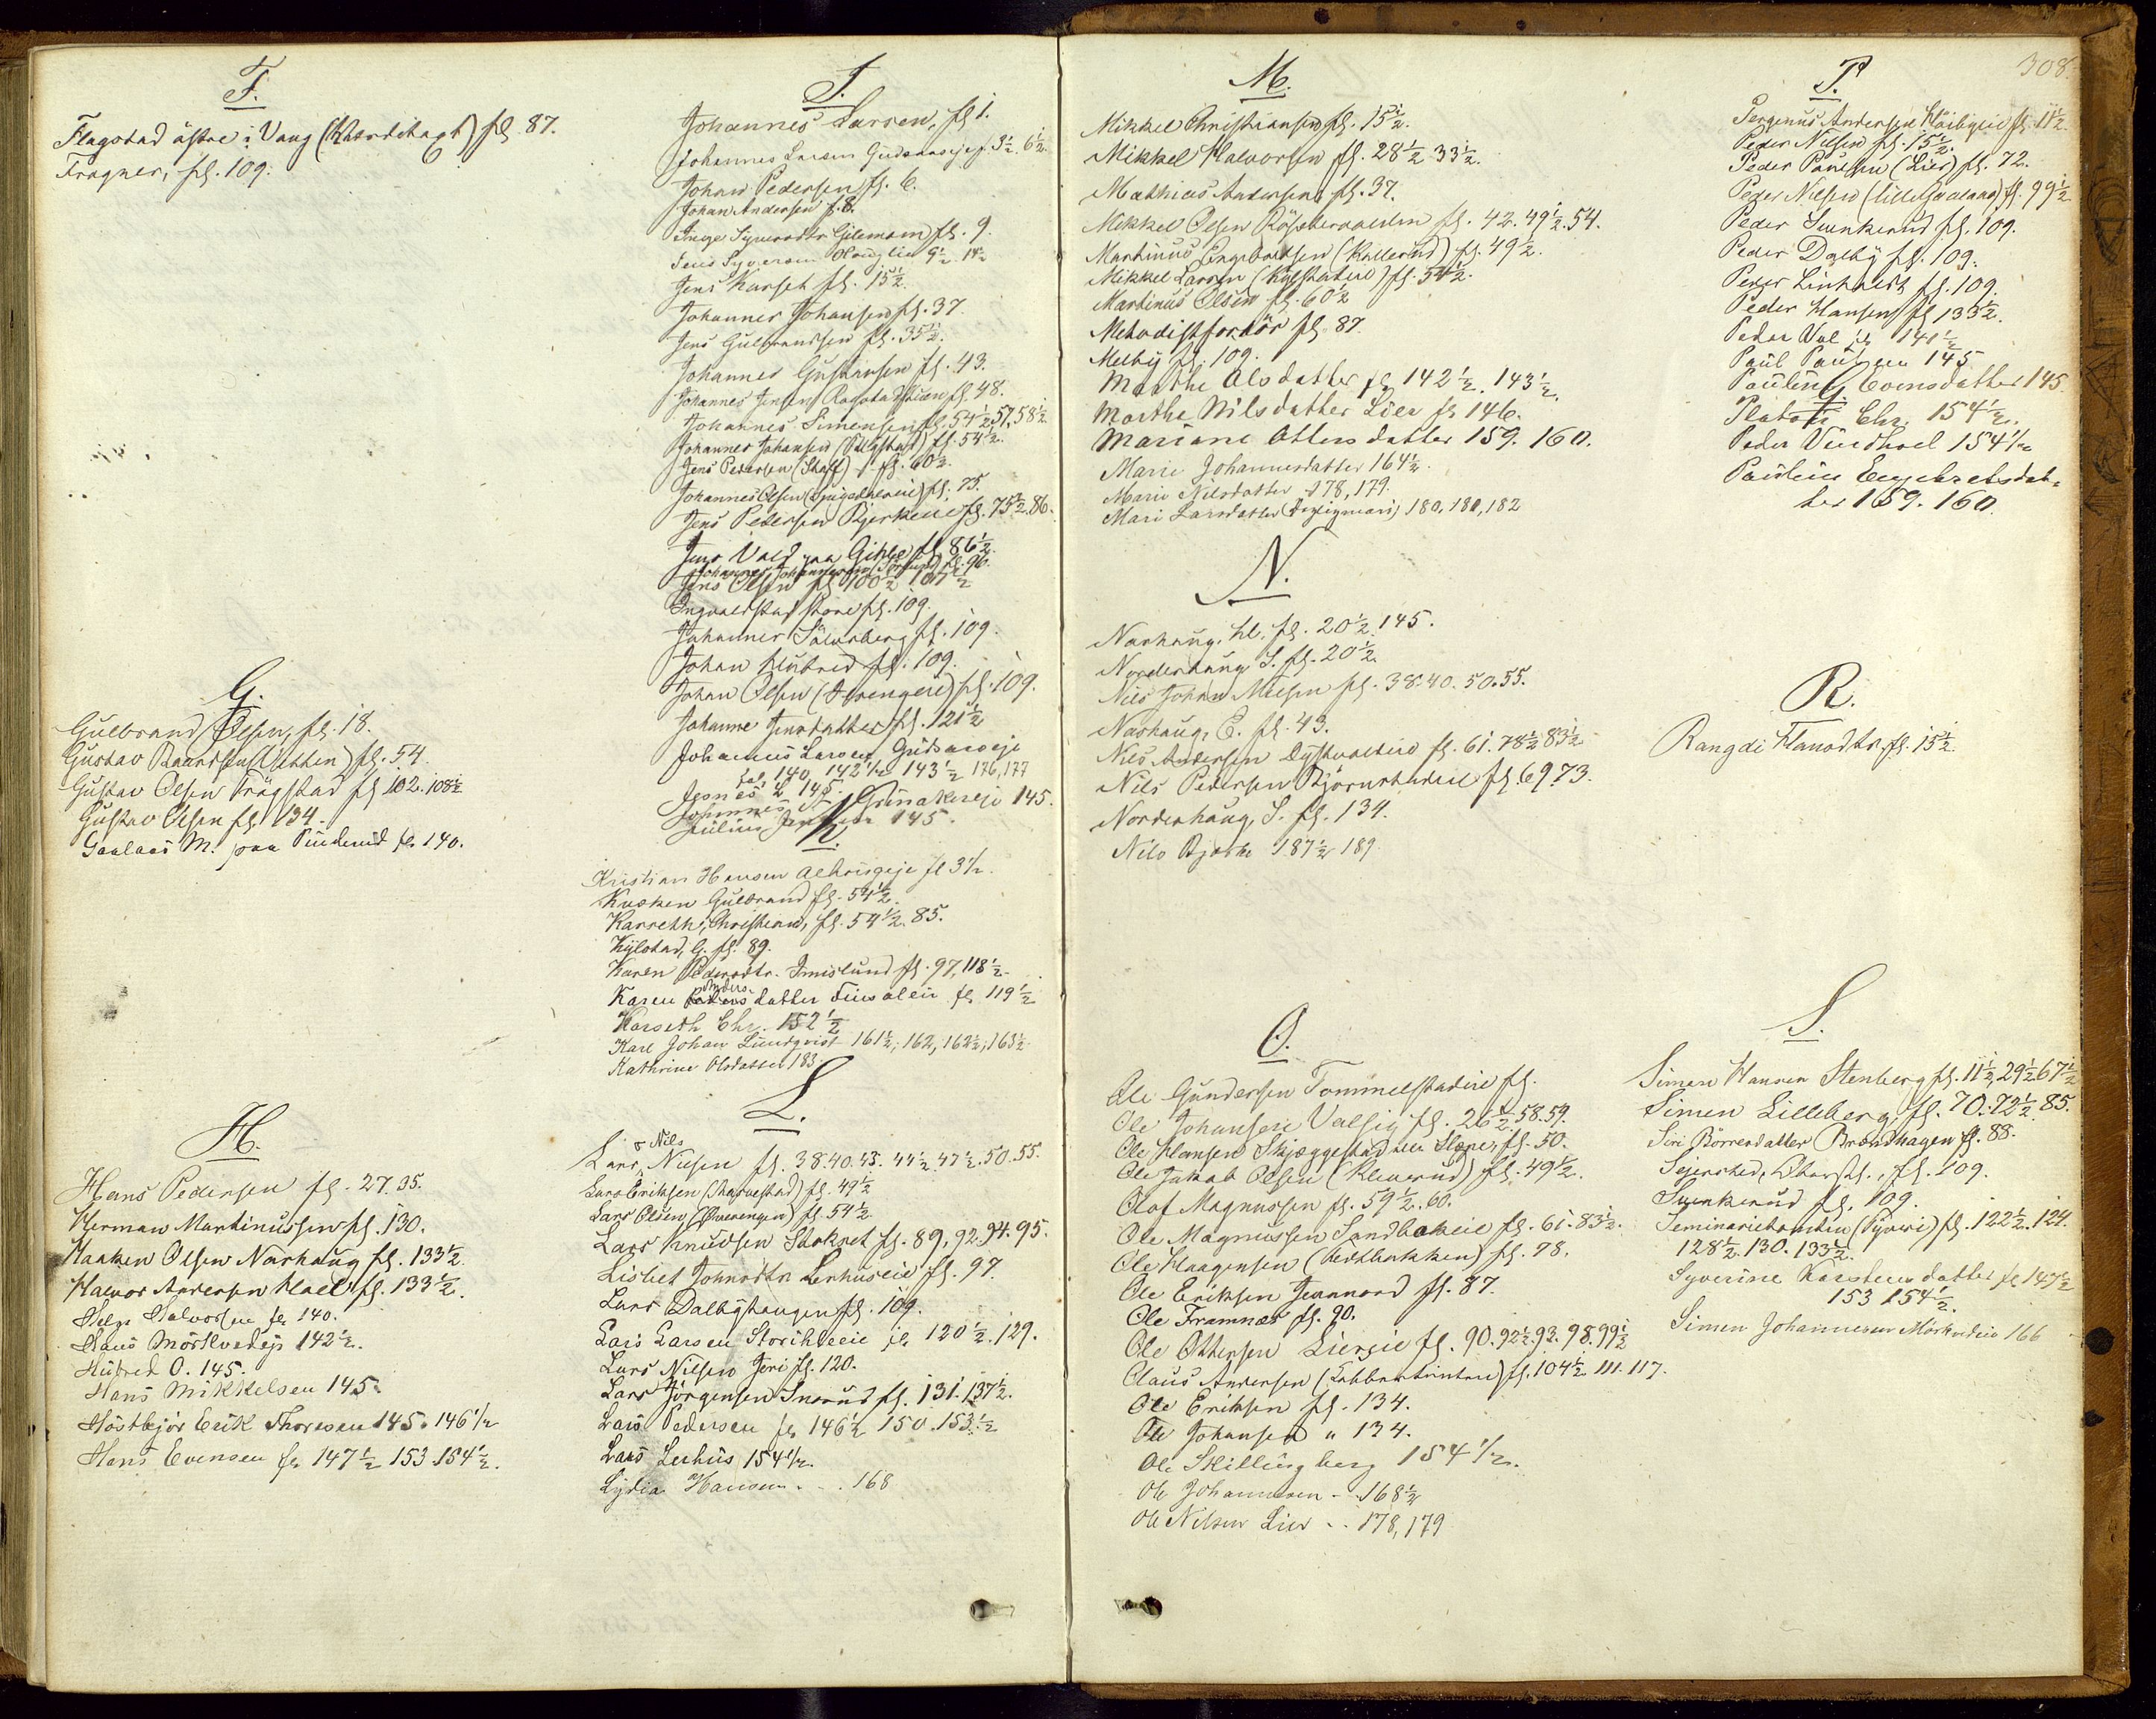 F.
Flagstad östre i Vang fl 87.
Fragner, fl. 109.
G.
Gulbrand Olsen, fl. 18.
Gustav fl. 54.
Gustav Olsen Frögstad fl 102. 108½
Gustav Olsen fl. 134.
Gaalaas M. paa fl. 140.
H.
Hans Pedersen fl. 27. 35.
Herman Martinussen fl. 130.
Haaken Olsen Narhaug fl. 133½
Halvor Andersen Hael fl. 133½.
Helge Halvorsen fl. 140.
Hans Mörkvedejs 142½.
Hubred O. 145.
Hans Mikkelsen 145.
Höstbjör Erik Thoresen 145. 146½
Hans Evensen fl. 147½ 153 154½.
J.
Johannes Larsen, fl 1.
Johannes Larsen 3½. 6½
Johan Pedersen fl. 6.
Johan Andersen f. 8.
Inger Syversdtr. fl. 9.
Jens Syversen 9½
Jens Karset fl. 15½.
Johannes Johansen fl. 37.
Jens Gulbrandsen fl. 35½.
Johannes Gustavsen fl. 43.
Johannes Jensen fl. 48.
Johannes Simensen fl. 54½ 57. 58½
Johannes Johansen fl. 54½.
Jens Pedersen (Skaff) fl. 60½.
Johannes Olsen fl. 75.
Jens Pedersen Bjerkeeie fl. 75½. 86.
Jens Vold paa Gihle fl 86½.
Johannes Johannessen fl. 96.
Jens Olsen fl 100½ 107½
Ingvaldstad store fl. 109.
Johannes Sölvsberg fl. 109.
Johan Hubred fl. 109.
Johan Olsen fl. 109.
Johanne Jensdatter fl. 121½
Johannes Larsen
fol. 140. 142½ 143½ 176, 177
L 145.
145.
145.
K.
Kristian Hansen fl 3½.
Kusken Gulbrand fl. 54½.
Karseth, Christian, fl. 54½. 85.
Kylstad, G. fl. 89.
Karen Pedersdtr. Imislund fl. 97, 118½
Karen Anders
datter fl. 119½
Karseth Chr. 152½
Karl Johan Lundqvist 161½, 162, 162½, 163½
Kathrine Olsdatter 183
L.
Lars & Nils Nilsen fl. 38. 40. 43. 44½. 47½. 50. 55.
Lars Eriksen fl. 49½
Lars Olsen fl. 54½
Lars Knudsen Stokset fl. 89, 92. 94. 95.
Lisbet Johnsdtr Lerhuseie fl. 97.
Lars Dalbyhaugen fl. 109.
Lars Larsen fl. 120½. 129.
Lars Nilsen Jeri fl. 120.
Lars Jörgensen Snerud fl. 131. 137½.
Lars Pedersen fl. 146½ 150. 153½
Lars Lerhus 154½.
Lydia Hansen . . . 168
M.
Mikkel Christiansen fl. 15½.
Mikkel Halvorsen fl. 28½ 33½.
Mathias Andersen fl. 37.
Mikkel Olsen fl. 42. 49½. 54.
Martinus Engebretsen fl. 49½.
Mikkel Larsen fl. 54½.
Martinus Olsen fl. 60½
Methodistforkör fl. 87.
Melby fl. 109.
Marthe Olsdatter fl. 142½. 143½.
Marthe Nilsdatter Lier fl. 146.
Mariane Ottersdatter 159. 160.
Marie Johannesdatter 164½.
Marie Nilsdatter 178, 179.
Mari Larsdatter 180, 180, 182
N.
Narhaug, hl. fl. 20½. 145.
Norderhaug S. fl. 20½.
Nils Johan Nilsen fl. 38. 40. 50. 55.
Narhaug, E. fl. 43.
Nils Andersen fl. 61. 78½ 83½
Nils Pedersen fl. 69. 73.
Norderhaug, S. fl. 134.
Nils Bjørke 187½ 189
O.
Ole Gundersen Tommelstadeie fl.
Ole Johansen Valsig fl. 26½. 58. 59.
Ole Hansen Skjæggestad fl. 50.
Ole Jakob Olsen (Kleverud) fl. 49½.
Olof Magnussen fl. 59½. 60.
Ole Magnussen Sandbakeie fl. 61. 83½.
Ole Haagensen fl. 78.
Ole Eriksen fl. 87.
Ole Framnæs fl. 90.
Ole Ottersen Liereie fl. 90. 92½. 93. 98. 99½
Olaus Andersen fl. 104½ 111. 117.
Ole Eriksen fl. 134.
Ole Johansen " 134.
Ole Skillingberg 154½.
Ole Johannesen . . 168½
Ole Nilsen Lier . . 178, 179
308.
P.
Andersen fl. 11½
Peder Nilsen fl. 15½.
Peder Paulsen (Lier) fl. 72.
Peder Nilsen fl. 99½
Peder Svenkerud fl. 109.
Peder Dalby fl. 109.
Peder fl. 109.
Peder Hansen fl 133½.
Peder Vol fl. 141½
Paul Paulsen 145
Pauline Evensdatter 145
Chr. 154½.
Peder 154½
Pauline Engebretsdat-
ter 159. 160.
R.
Rangdi Hansdtr. fl. 15½
S.
Simen Hansen Stenberg fl. 11½, 29½ 67½
Simen Lilleberg, fl. 70. 72½ 85.
Siri Börresdatter Brændhagen fl. 88.
Sejersted, fl. 109.
Svenkerud fl. 109.
fl. 122½. 124.
128½. 130. 133½.
Syverine Karstensdatter fl. 147½
153 154½.
Simen Johannesen 166